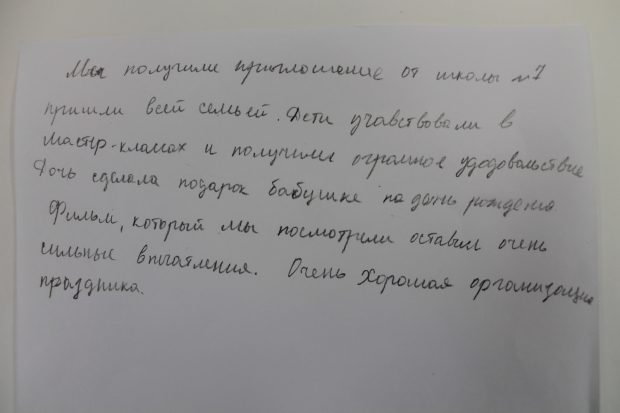 Мы получили приглошение от школы №7
пришли всей семьей. Дети учавствовали в
мастер-класах и получили огромное удодовольствие
Дочь сделала подарок бабушке на день рождения.
Фильм, который мы посмотрели оставил очень
сильные впичатления. Очень хорошая организация
праздника.